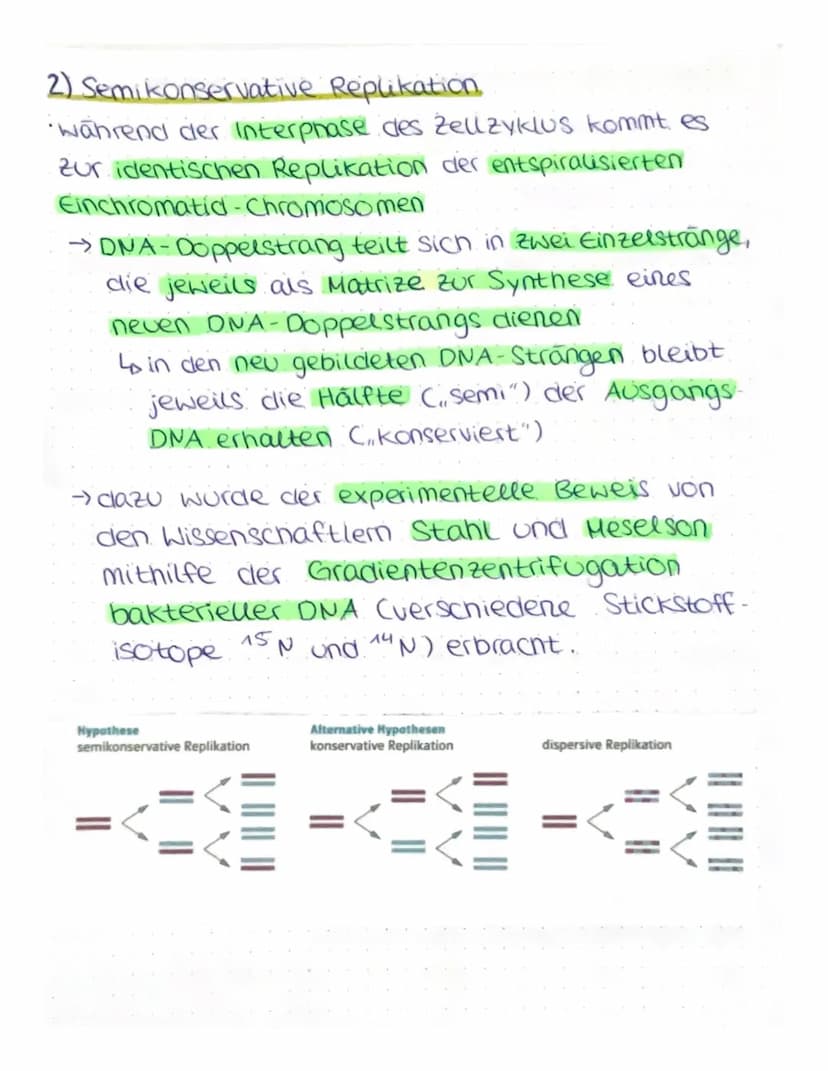 2) Semikonservative Replikation
·während der Interphase des Zellzyklus kommt es
zur identischen Replikation der entspiralisierten
Einchromatid-Chromosomen
→ DNA-Doppelstrang teilt sich in zwei Einzelstränge,
die jeweils als Matrize zur Synthese eines
neuen DNA-Doppelstrangs dienen
↳ in den neu gebildeten DNA-Strängen bleibt
jeweils die Hälfte („semi") der Ausgangs-
DNA erhalten („konserviert")
→ dazu wurde der experimentelle Beweis von
den Wissenschaftlern Stahl und Meselson
mithilfe der Gradientenzentrifugation
bakterieller DNA (verschiedene Stickstoff-
isotope ¹⁵N und ¹⁴N) erbracht.
Hypothese
semikonservative Replikation
Alternative Hypothesen
konservative Replikation
dispersive Replikation